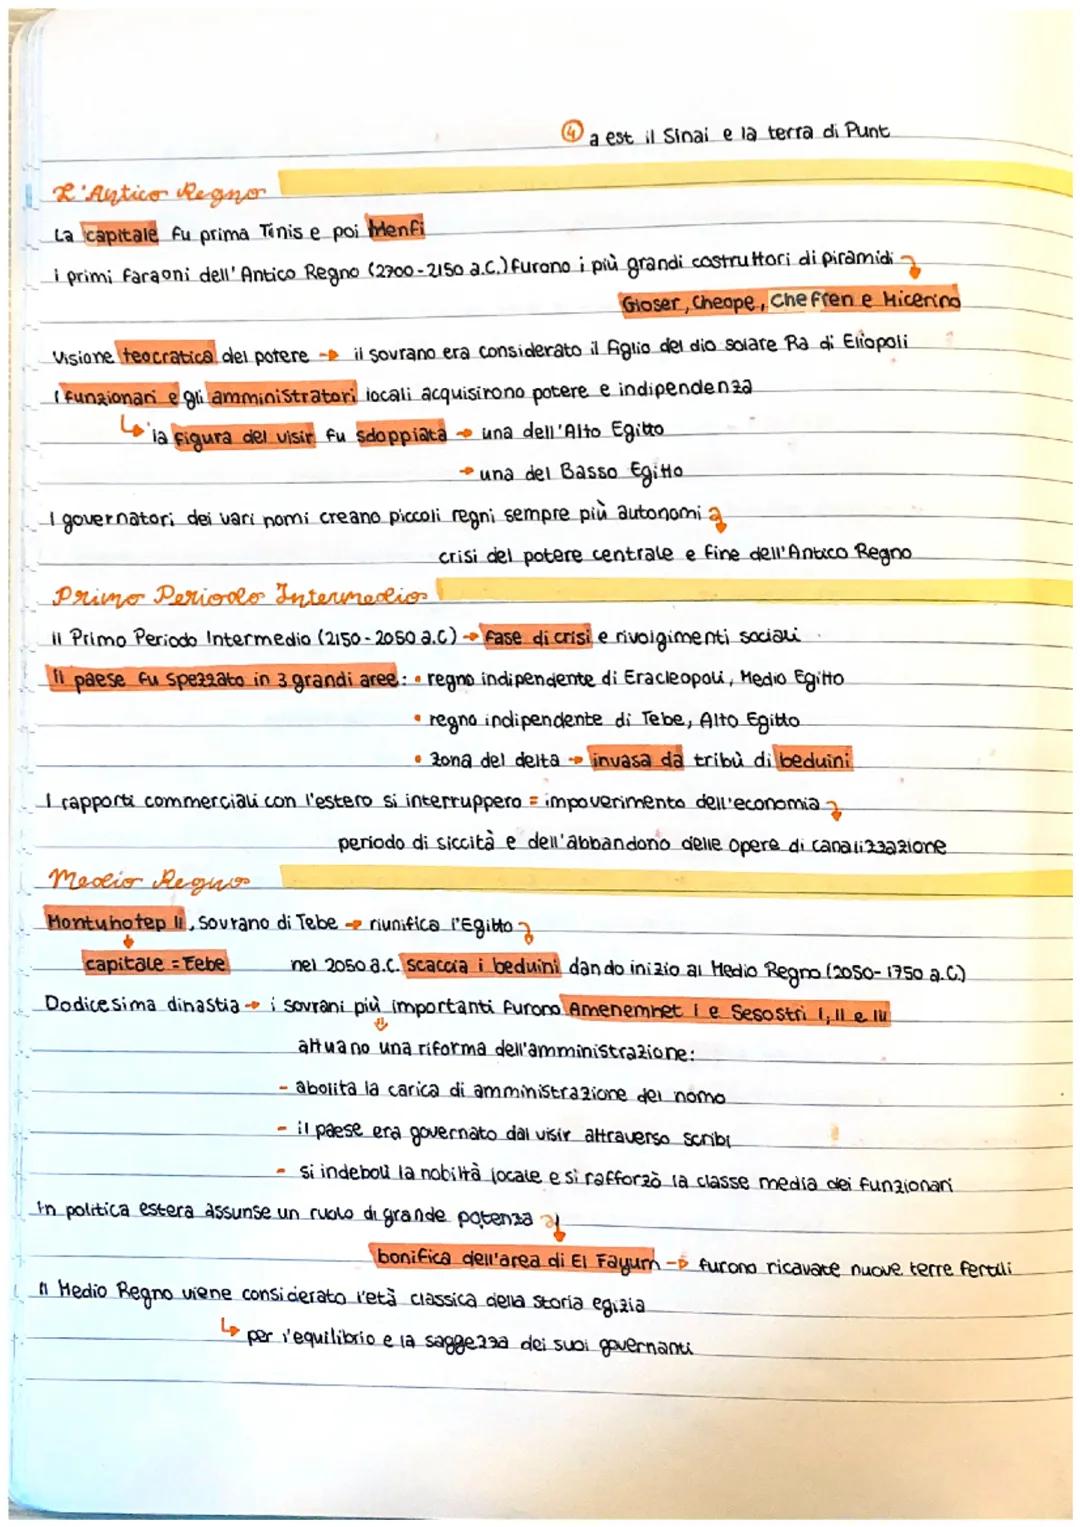 ④ a est il Sinai e la terra di Punt
L'Antico Regno
La capitale fu prima Tinis e poi Menfi
i primi faraoni dell'Antico Regno (2700-2150 a.C.) furono i più grandi costruttori di piramidi
Gioser, Cheope, Chefren e Micerino
Visione teocratica del potere → il sovrano era considerato il figlio del dio solare Ra di Eliopoli
I funzionari e gli amministratori locali acquisirono potere e indipendenza
↳ la figura del visir fu sdoppiata → una dell'Alto Egitto
→ una del Basso Egitto
I governatori dei vari nomi creano piccoli regni sempre più autonomi
crisi del potere centrale e fine dell'Antico Regno
Primo Periodo Intermedio
Il Primo Periodo Intermedio (2150-2050 a.C) → fase di crisi e rivolgimenti sociali
Il paese fu spezzato in 3 grandi aree: • regno indipendente di Eracleopoli, Medio Egitto
• regno indipendente di Tebe, Alto Egitto
• zona del delta → invasa da tribù di beduini
I rapporti commerciali con l'estero si interruppero = impoverimento dell'economia
periodo di siccità e dell'abbandono delle opere di canalizzazione
Medio Regno
Montuhotep II, sovrano di Tebe → riunifica l'Egitto
capitale = Tebe nel 2050 a.C. scaccia i beduini dando inizio al Medio Regno (2050-1750 a.C.)
Dodicesima dinastia → i sovrani più importanti furono Amenemhet I e Sesostri I, II e III
attuano una riforma dell'amministrazione:
- abolita la carica di amministrazione del nomo
- il paese era governato dal visir attraverso scribi
- si indebolì la nobiltà locale e si rafforzò la classe media dei funzionari
in politica estera assunse un ruolo di grande potenza
bonifica dell'area di El Fayum → furono ricavate nuove terre fertili
Il Medio Regno viene considerato l'età classica della storia egizia
↳ per l'equilibrio e la saggezza dei suoi governanti